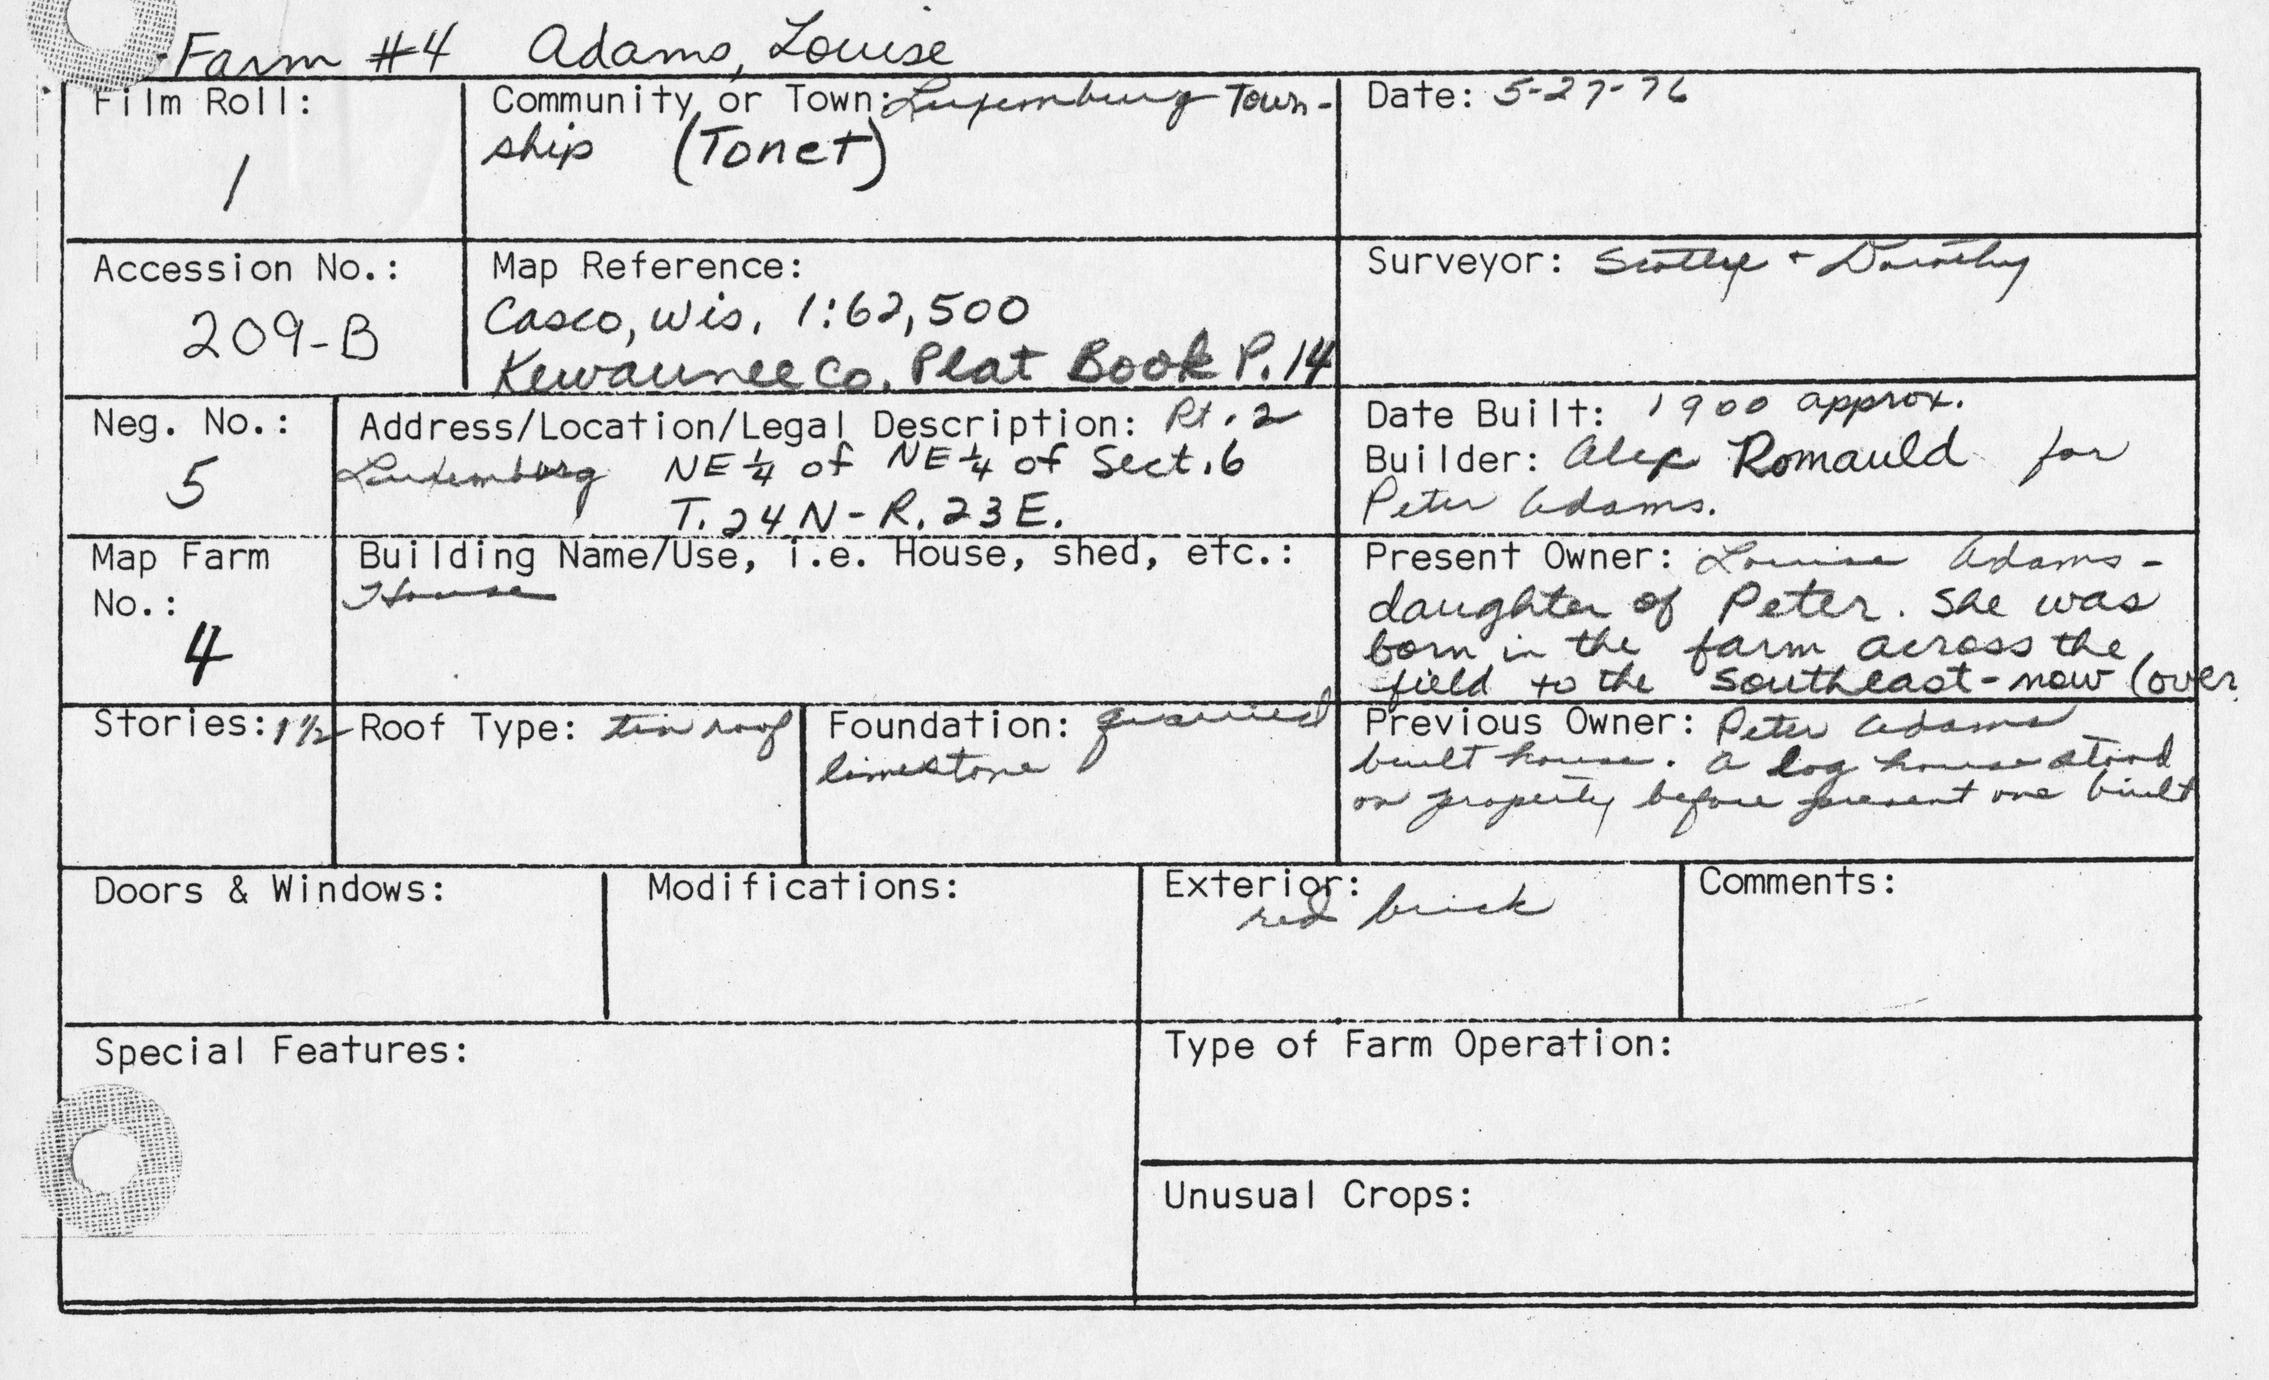 Farm #4 Adams, Louise
Film Roll:
1
Community or Town: Luxemburg Town-
ship (Tonet)
Date: 5-27-76
Accession No.:
209-B
Map Reference:
Casco, Wis. 1:62,500
Kewaunee Co. Plat Book P. 14
Surveyor: + Dorothy
Neg. No.:
5
Address/Location/Legal Description: Rt. 2
Luxemburg NE 1/4 of NE 1/4 of Sect. 6
T. 24 N - R. 23 E.
Date Built: 1900 approx.
Builder: Alex Romauld for
Peter Adams.
Map Farm
No.:
4
Building Name/Use, i.e. House, shed, etc.:
House
Present Owner: Louise Adams -
daughter of Peter. She was
born in the farm across the
field to the southeast - now (over
Stories: 1 1/2
Roof Type: tin roof
Foundation: quarried
limestone
Previous Owner: Peter Adams
built house. A log house stood
on property before present one built
Doors & Windows:
Modifications:
Exterior:
red brick
Comments:
Special Features:
Type of Farm Operation:
Unusual Crops: